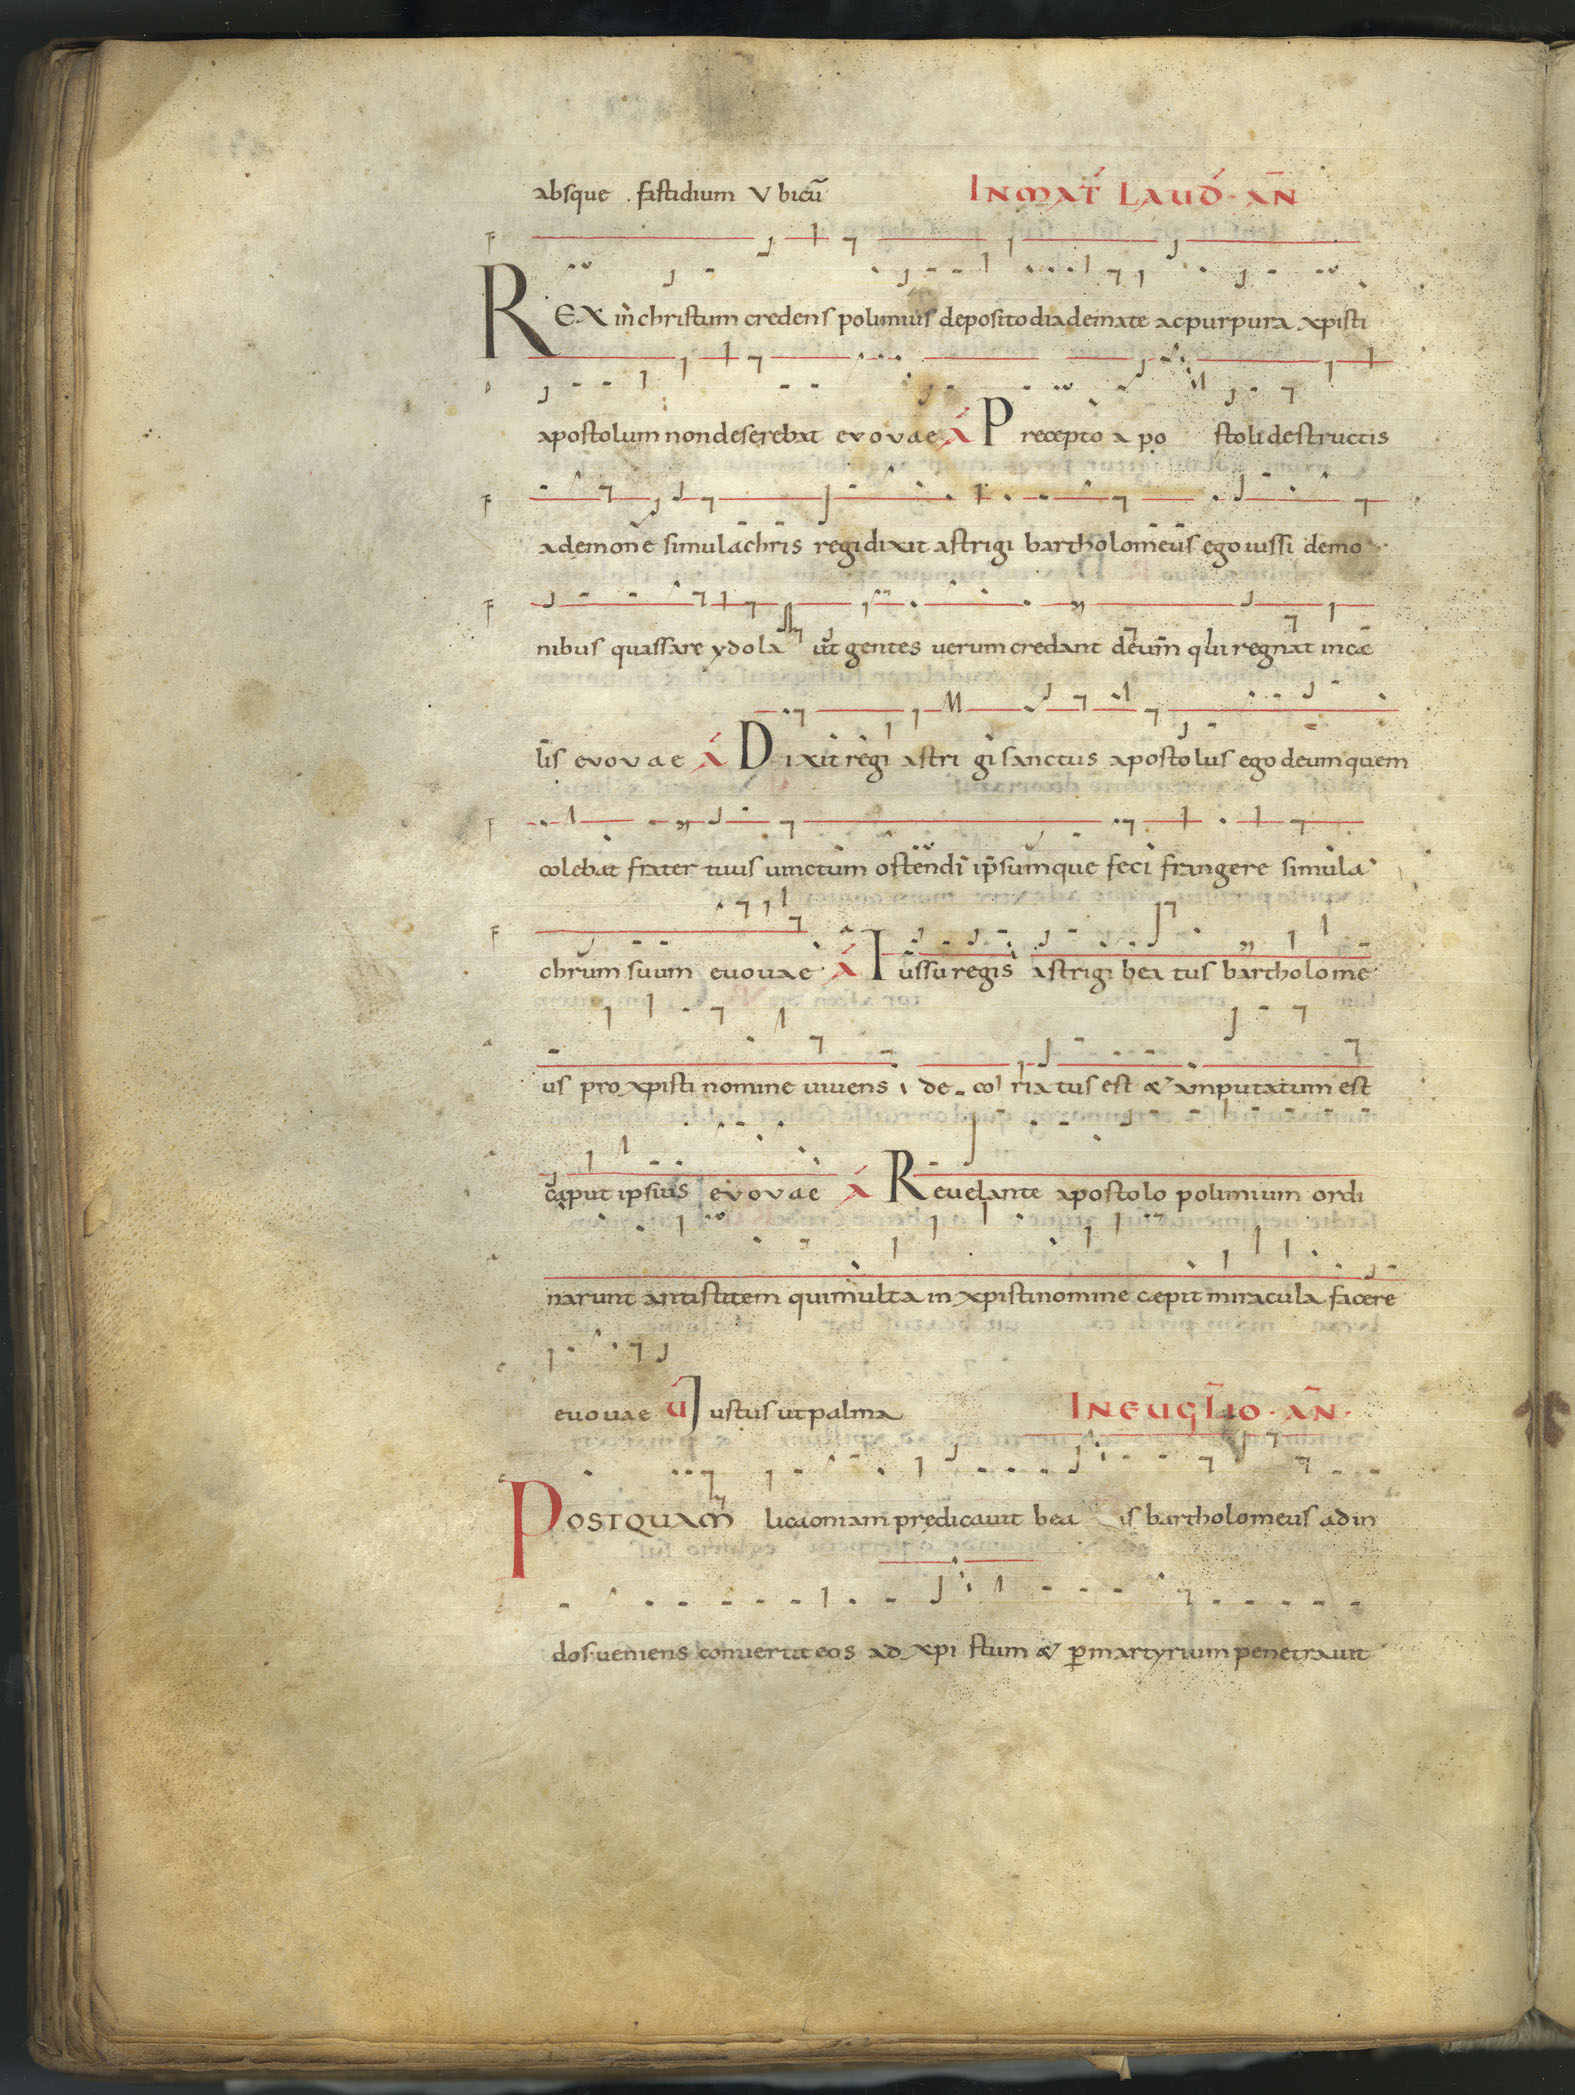 absque fastidium Vbicū INMAT LAUD · AN̄
REX in christum credens polimius deposito diademate ac purpura xpisti
apostolum non deserebat evovae A Precepto apostoli destructis
a demone simulachris regi dixit astrigi bartholomeus ego iussi demo
nibus quassare ydola ut gentes uerum credant deum qui regnat in cæ
lis evovae A Dixit regi astrigi sanctus apostolus ego deum quem
colebat frater tuus uinctum ostendi ipsumque feci frangere simula
chrum suum euouae A Iussu regis astrigi beatus bartholome
us pro xpisti nomine uiuens decoriatus est & amputatum est
caput ipsius evovae A Reuelante apostolo polimium ordi
narunt antistitem qui multa in xpisti nomine cæpit miracula facere
euouae V Iustus ut palma IN EUGLIO · AN̄ ·
POSTQUAM licaoniam predicauit bea is bartholomeus ad in
dos ueniens conuertit eos ad xpistum & p martyrium penetrauit